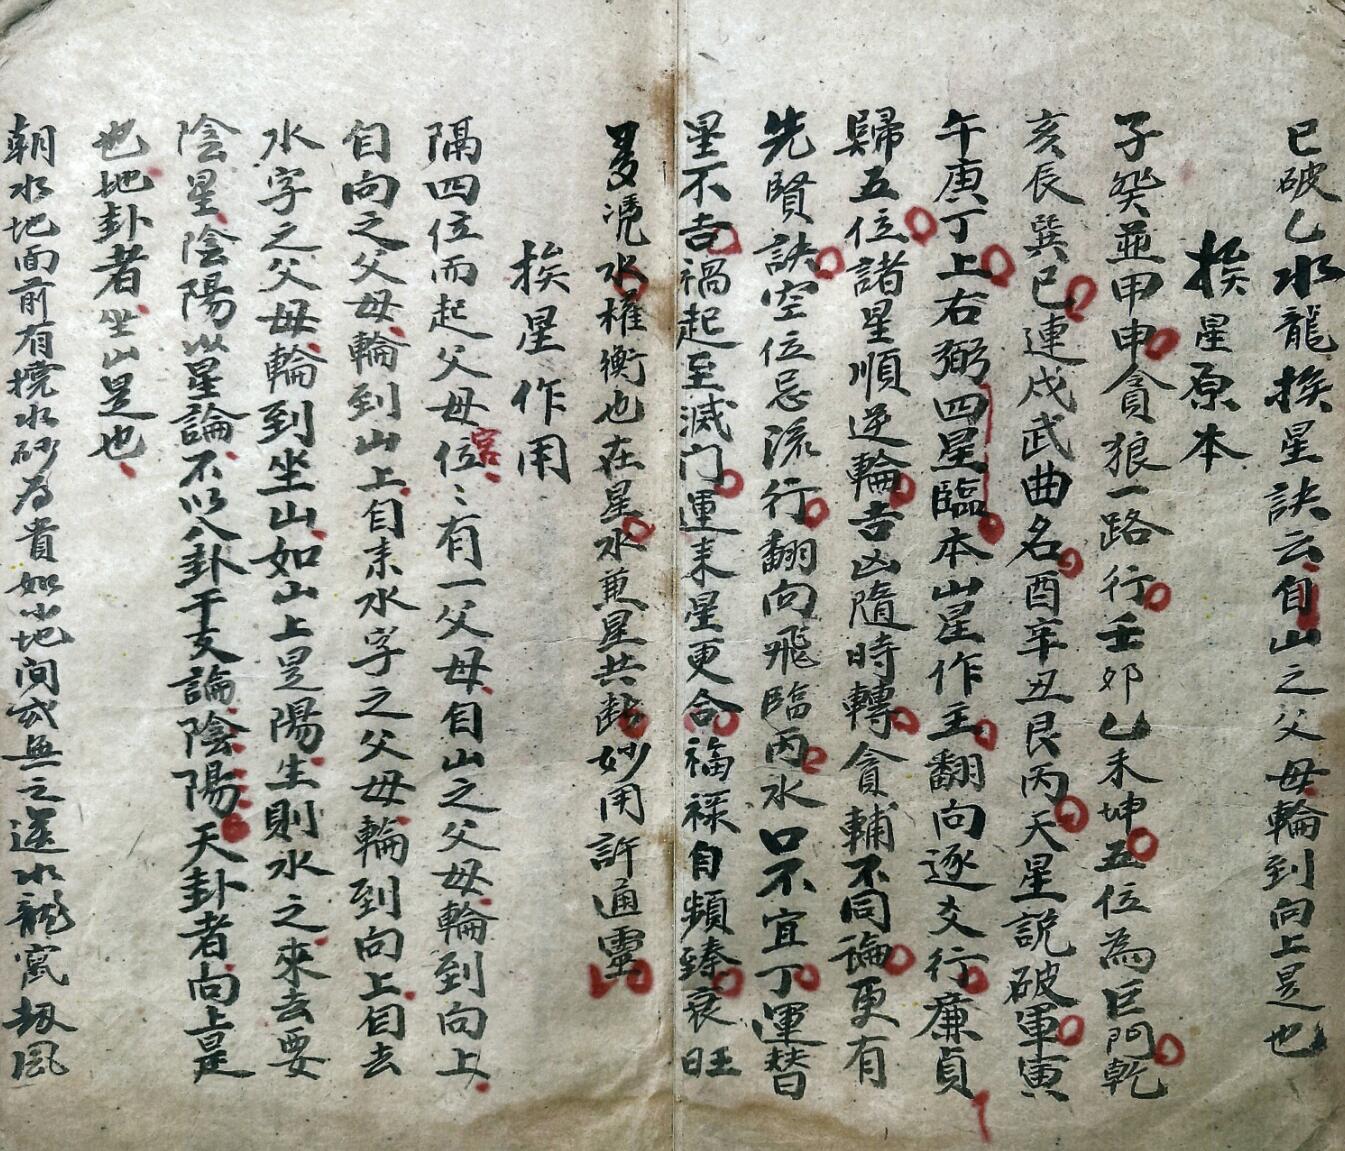 巳破乙水龍挨星訣云自山之父母輪到向上是也
挨星原本
子癸並甲申貪狼一路行壬卯乙未坤五位為巨門乾
亥辰巽巳連戌武曲名酉辛丑艮丙天星説破軍寅
午庚丁上右弼四星臨本山星作主翻向逐爻行廉貞
歸五位諸星順逆輪吉凶隨時轉貪輔不同論更有
先賢訣空位忌流行翻向飛臨丙水口不宜丁運替
星不吉禍起至滅门運来星更合福祿自頻臻衰旺
多凴水權衡也在星水兼星共斷妙用許通靈
挨星作用
隔四位而起父母位宫〻有一父母自山之父母輪到向上
自向之父母輪到山上自来水字之父母輪到向上自去
水字之父母輪到坐山如山上是陽生則水之來去要
陰星陰陽以星論不以八卦干支論陰陽天卦者向上是
也地卦者坐山是也
朝水地面前有撓水砂為貴如小地间或無之送水龍窩刼風